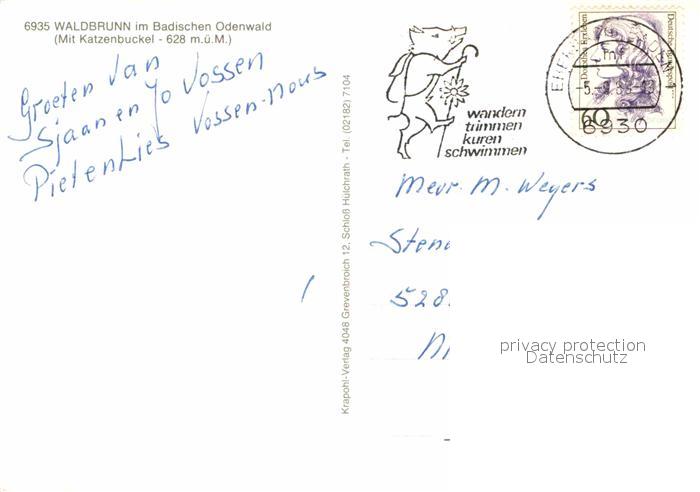 6935 WALDBRUNN im Badischen Odenwald
(Mit Katzenbuckel - 628 m.ü.M.)
Groeten van
Sjaan en Jo Vossen
Piet en Lies Vossen-Nous
Krapohl-Verlag 4048 Grevenbroich 12, Schloß Hülchrath - Tel. (02182) 7104
wandern
trimmen
kuren
schwimmen
Deutsche Bundespost
60
6930
Mevr. M. Weyers
Sten
528
N
privacy protection
Datenschutz